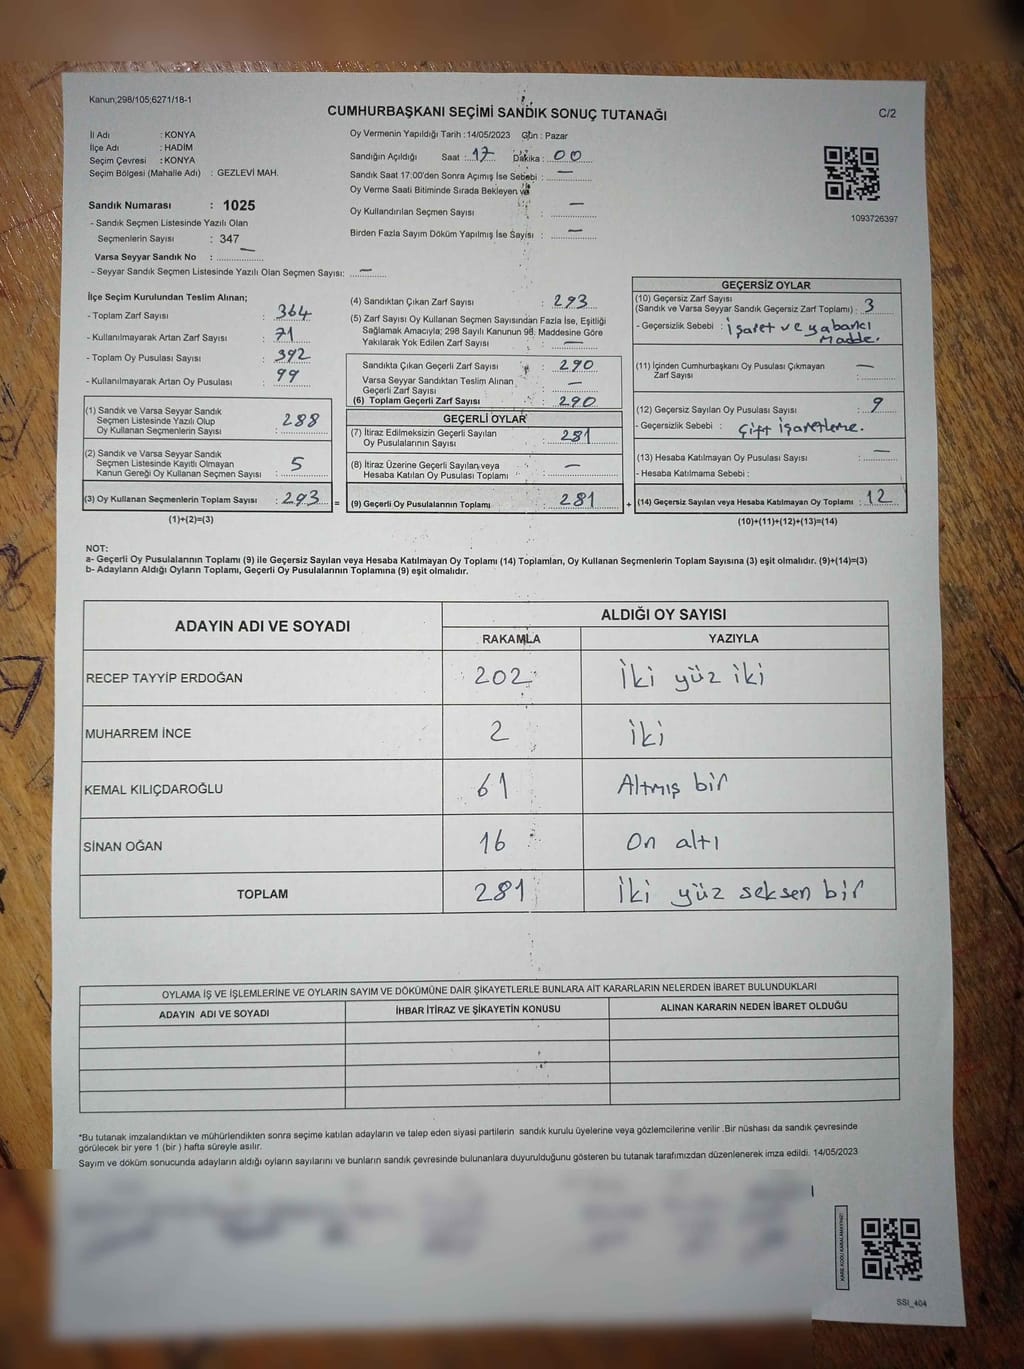 Kanun;298/105;6271/18-1
CUMHURBAŞKANI SEÇİMİ SANDIK SONUÇ TUTANAĞI
C/2
İl Adı : KONYA
İlçe Adı : HADİM
Seçim Çevresi : KONYA
Seçim Bölgesi (Mahalle Adı) : GEZLEVİ MAH.
Oy Vermenin Yapıldığı Tarih : 14/05/2023 Gün : Pazar
Sandığın Açıldığı Saat : 17 Dakika : 00
Sandık Saat 17:00'den Sonra Açımış İse Sebebi : —
Oy Verme Saati Bitiminde Sırada Bekleyen ve
Oy Kullandırılan Seçmen Sayısı : —
Birden Fazla Sayım Döküm Yapılmış İse Sayısı : —
1093726397
Sandık Numarası : 1025
- Sandık Seçmen Listesinde Yazılı Olan
Seçmenlerin Sayısı : 347
Varsa Seyyar Sandık No : —
- Seyyar Sandık Seçmen Listesinde Yazılı Olan Seçmen Sayısı: —
İlçe Seçim Kurulundan Teslim Alınan;
- Toplam Zarf Sayısı : 364
- Kullanılmayarak Artan Zarf Sayısı : 71
- Toplam Oy Pusulası Sayısı : 392
- Kullanılmayarak Artan Oy Pusulası : 99
(1) Sandık ve Varsa Seyyar Sandık
Seçmen Listesinde Yazılı Olup
Oy Kullanan Seçmenlerin Sayısı : 288
(2) Sandık ve Varsa Seyyar Sandık
Seçmen Listesinde Kayıtlı Olmayan
Kanun Gereği Oy Kullanan Seçmen Sayısı : 5
(3) Oy Kullanan Seçmenlerin Toplam Sayısı : 293 =
(1)+(2)=(3)
(4) Sandıktan Çıkan Zarf Sayısı : 293
(5) Zarf Sayısı Oy Kullanan Seçmen Sayısından Fazla İse, Eşitliği
Sağlamak Amacıyla; 298 Sayılı Kanunun 98. Maddesine Göre
Yakılarak Yok Edilen Zarf Sayısı : —
Sandıkta Çıkan Geçerli Zarf Sayısı : 290
Varsa Seyyar Sandıktan Teslim Alınan
Geçerli Zarf Sayısı : —
(6) Toplam Geçerli Zarf Sayısı : 290
GEÇERLİ OYLAR
(7) İtiraz Edilmeksizin Geçerli Sayılan
Oy Pusulalarının Sayısı : 281
(8) İtiraz Üzerine Geçerli Sayılan veya
Hesaba Katılan Oy Pusulası Toplamı : —
(9) Geçerli Oy Pusulalarının Toplamı : 281 +
GEÇERSİZ OYLAR
(10) Geçersiz Zarf Sayısı
(Sandık ve Varsa Seyyar Sandık Geçersiz Zarf Toplamı) : 3
- Geçersizlik Sebebi : İşaret ve yabancı
Madde.
(11) İçinden Cumhurbaşkanı Oy Pusulası Çıkmayan
Zarf Sayısı : —
(12) Geçersiz Sayılan Oy Pusulası Sayısı : 9
- Geçersizlik Sebebi : Çift işaretleme.
(13) Hesaba Katılmayan Oy Pusulası Sayısı : —
- Hesaba Katılmama Sebebi :
(14) Geçersiz Sayılan veya Hesaba Katılmayan Oy Toplamı : 12
(10)+(11)+(12)+(13)=(14)
NOT:
a- Geçerli Oy Pusulalarının Toplamı (9) ile Geçersiz Sayılan veya Hesaba Katılmayan Oy Toplamı (14) Toplamları, Oy Kullanan Seçmenlerin Toplam Sayısına (3) eşit olmalıdır. (9)+(14)=(3)
b- Adayların Aldığı Oyların Toplamı, Geçerli Oy Pusulalarının Toplamına (9) eşit olmalıdır.
ADAYIN ADI VE SOYADI
ALDIĞI OY SAYISI
RAKAMLA YAZIYLA
RECEP TAYYİP ERDOĞAN 202 İki yüz iki
MUHARREM İNCE 2 İki
KEMAL KILIÇDAROĞLU 61 Altmış bir
SİNAN OĞAN 16 On altı
TOPLAM 281 İki yüz seksen bir
OYLAMA İŞ VE İŞLEMLERİNE VE OYLARIN SAYIM VE DÖKÜMÜNE DAİR ŞİKAYETLERLE BUNLARA AİT KARARLARIN NELERDEN İBARET BULUNDUKLARI
ADAYIN ADI VE SOYADI İHBAR İTİRAZ VE ŞİKAYETİN KONUSU ALINAN KARARIN NEDEN İBARET OLDUĞU
*Bu tutanak imzalandıktan ve mühürlendikten sonra seçime katılan adayların ve talep eden siyasi partilerin sandık kurulu üyelerine veya gözlemcilerine verilir .Bir nüshası da sandık çevresinde
görülecek bir yere 1 (bir ) hafta süreyle asılır.
Sayım ve döküm sonucunda adayların aldığı oyların sayılarını ve bunların sandık çevresinde bulunanlara duyurulduğunu gösteren bu tutanak tarafımızdan düzenlenerek imza edildi. 14/05/2023
KARE KODU KARALAMAYINIZ!
SSI_404